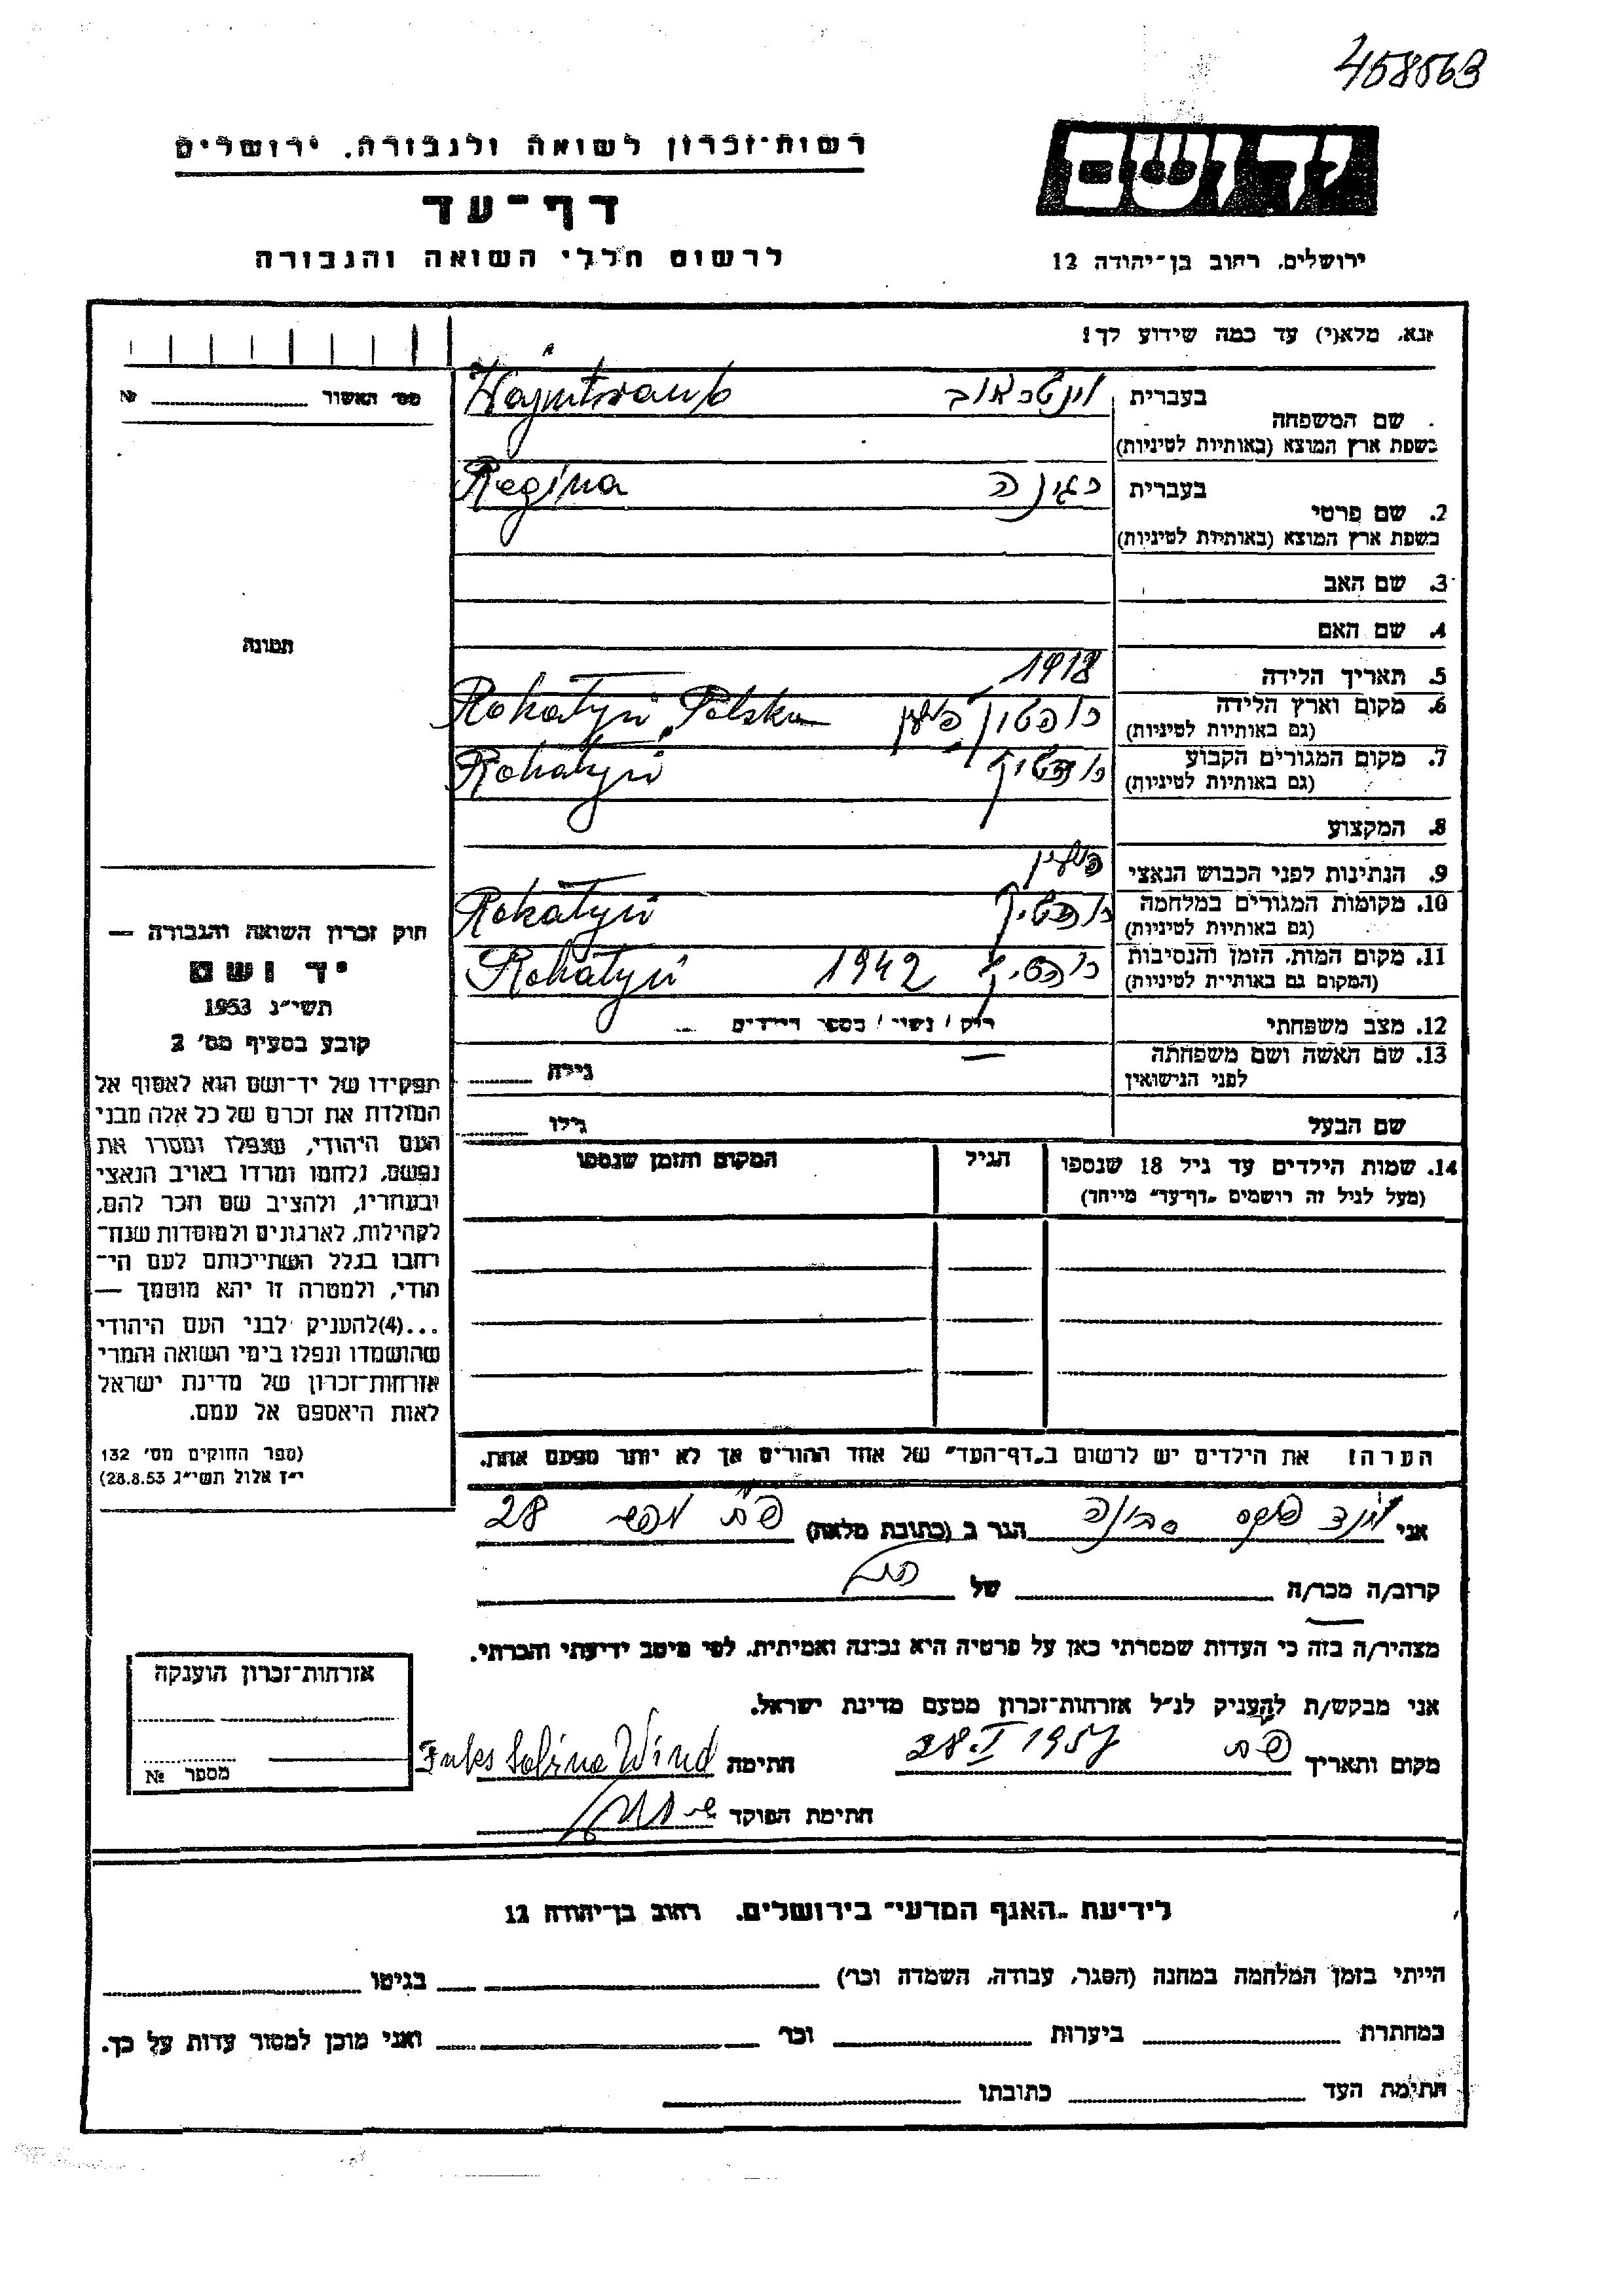 458563
רשות-זכרון לשואה ולגבורה, ירושלים
יד ושם
דף-עד
לרשום חללי השואה והגבורה
ירושלים, רחוב בן-יהודה 12
נא, מלא(י) עד כמה שידוע לך!
מס' האשור № ______
בעברית
שם המשפחה
בשפת ארץ המוצא (באותיות לטיניות)
וינטראוב Wajntraub
בעברית
2. שם פרטי
בשפת ארץ המוצא (באותיות לטיניות)
רגינה Regina
3. שם האב
4. שם האם
תמונה
5. תאריך הלידה 1918
6. מקום וארץ הלידה
(גם באותיות לטיניות)
רוהטין פולין Rohatyń Polska
7. מקום המגורים הקבוע
(גם באותיות לטיניות)
רוהטין Rohatyń
8. המקצוע
9. הנתינות לפני הכבוש הנאצי פולין
10. מקומות המגורים במלחמה
(גם באותיות לטיניות)
רוהטין Rohatyń
11. מקום המות, הזמן והנסיבות
(המקום גם באותיות לטיניות)
רוהטין 1942 Rohatyń
12. מצב משפחתי רוק / נשוי / מספר הילדים
13. שם האשה ושם משפחתה
לפני הנישואין
גילה
שם הבעל גילו
14. שמות הילדים עד גיל 18 שנספו
(מעל לגיל זה רושמים „דף-עד" מייחד)
הגיל
המקום והזמן שנספו
הערה! את הילדים יש לרשום ב„דף-העד" של אחד ההורים אך לא יותר מפעם אחת.
חוק זכרון השואה והגבורה —
יד ושם
תשי"ג 1953
קובע בסעיף מס' 2
תפקידו של יד-ושם הוא לאסוף אל
המולדת את זכרם של כל אלה מבני
העם היהודי, שנפלו ומסרו את
נפשם, נלחמו ומרדו באויב הנאצי
ובעוזריו, ולהציב שם וזכר להם,
לקהילות, לארגונים ולמוסדות שנח-
רבו בגלל השתייכותם לעם הי-
הודי, ולמטרה זו יהא מוסמך —
...(4)להעניק לבני העם היהודי
שהושמדו ונפלו בימי השואה והמרי
אזרחות-זכרון של מדינת ישראל
לאות היאספם אל עמם.
(ספר החוקים מס' 132
י"ז אלול תשי"ג 28.8.53)
אני וינד פוקס סבינה הגר ב (כתובת מלאה) 28
קרוב/ה מכר/ה של
מצהיר/ה בזה כי העדות שמסרתי כאן על פרטיה היא נכונה ואמיתית, לפי מיטב ידיעתי והכרתי.
אני מבקש/ת להעניק לנ"ל אזרחות-זכרון מטעם מדינת ישראל.
מקום ותאריך 28.I 1957 חתימה Fuks Sabina Wind
חתימת הפוקד
אזרחות-זכרון הוענקה
מספר №
לידיעת „האגף המדעי" בירושלים, רחוב בן-יהודה 12
הייתי בזמן המלחמה במחנה (הסגר, עבודה, השמדה וכו') בגיטו
במחתרת ביערות וכו' ואני מוכן למסור עדות על כך.
חתימת העד כתובתו